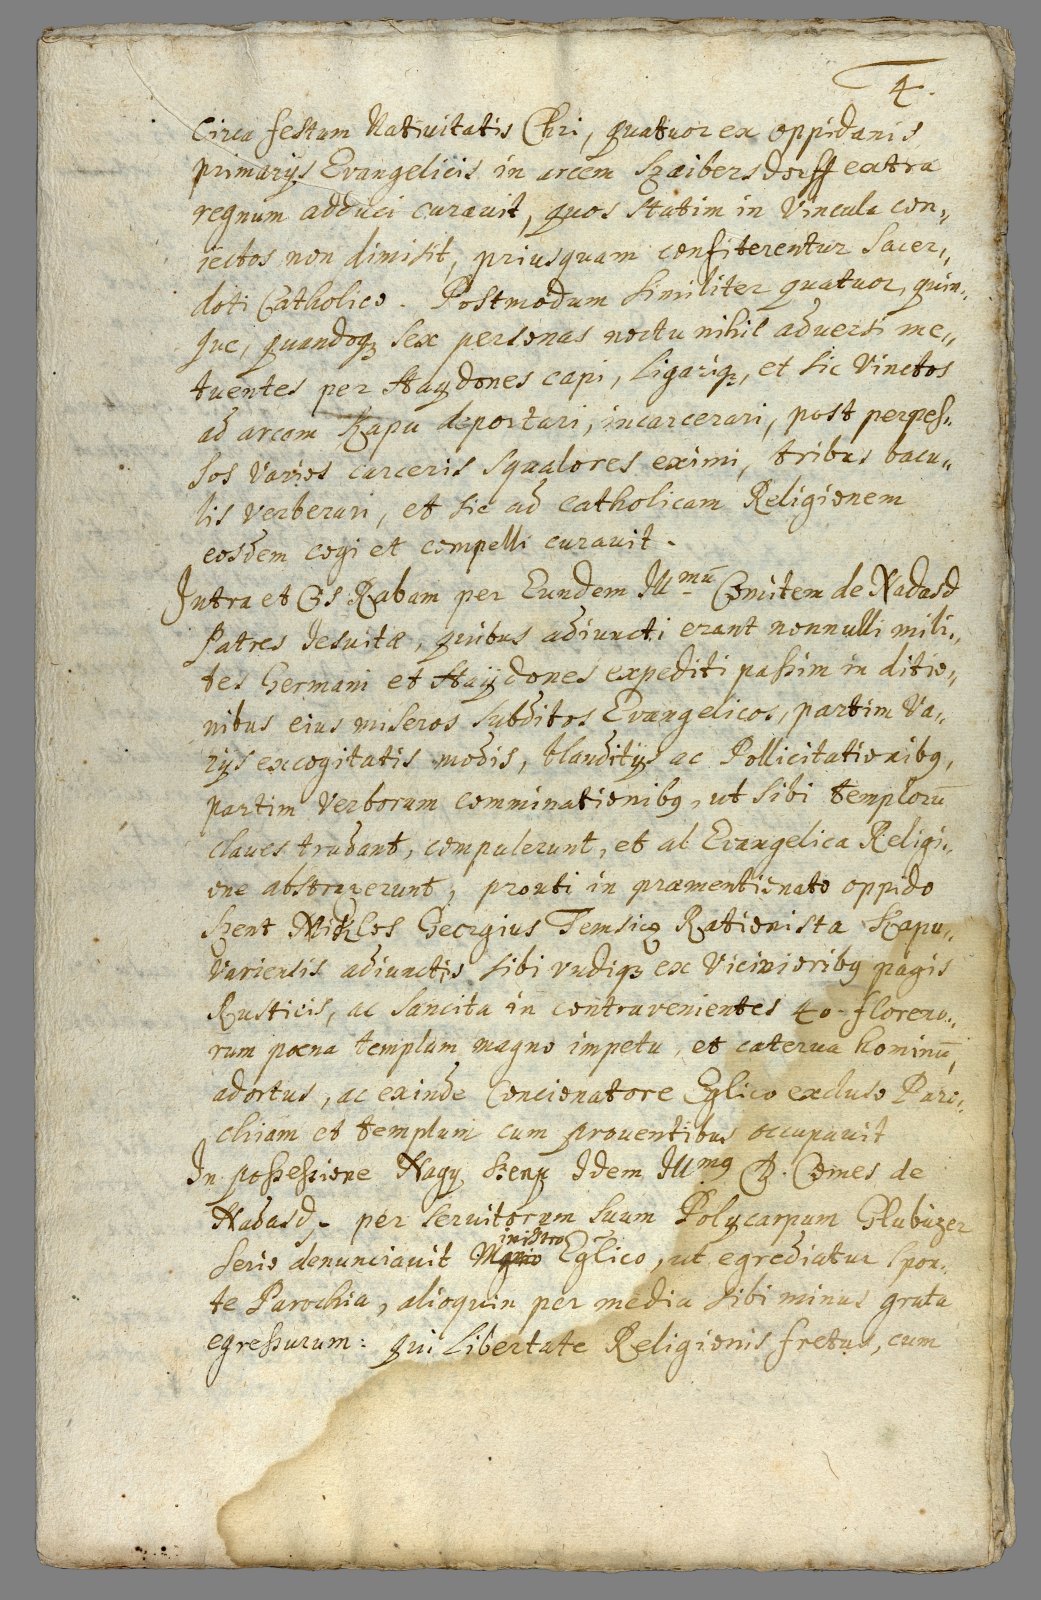 4.
Circa festum Natiuitatis Chri, quatuor ex oppidanis
primarijs Evangelicis in arcem Szaibersdorff extra
regnum adduci curauit, quos statim in Vincula con„
iectos non dimisit, priusquam confiterentur Sacer„
doti Catholico. Postmodum similiter quatuor, quin„
que, quandoqȝ sex personas noctu nihil adversi me„
tuentes per Haydones capi, ligariqȝ, et sic Vinctos
ad arcem Kapu deportari, incarcerari, post perpes„
sos Varios carceris squalores eximi, tribus bacu„
lis verberari, et sic ad Catholicam Religionem
eosdem cogi et compelli curauit.
Intra et Cis Rabam per Eundem Illmū Comitem de Nadasd
Patres Iesuitæ, quibus adiuncti erant nonnulli mili„
tes Germani et Haÿdones expediti passim in ditio„
nibus eius miseros subditos Evangelicos, partim Va„
rijs excogitatis modis, blanditijs ac Pollicitationibꝫ,
partim Verborum comminationibꝫ, ut sibi templorū
claues tradant, compulerunt, et ab Evangelica Religi„
one abstraxerunt, prouti in præmentionato oppido
Szent Miklos Georgius Temsicȝ Rationista Kapu„
Variensis adiunctis sibi vndiqȝ ex Vicinioribꝫ pagis
Rusticis, ac sancita in contravenientes 40 floreno„
rum pœna templum magno impetu, et caterua hominū,
adortus, ac exinde Concionatore Eglico excluso Paro„
chiam et templum cum prouentibus occupauit
In possessione Nagy Szenp Idem Illmꝫ D. Comes de
Nadasd, per seruitorem suum Polycarpum Glubiczer
serio denunciauit Ministro Eglico, ut egrediatur spon„
te Parochia, alioquin per media sibi minus grata
egressurum: qui libertate Religionis fretus, cum